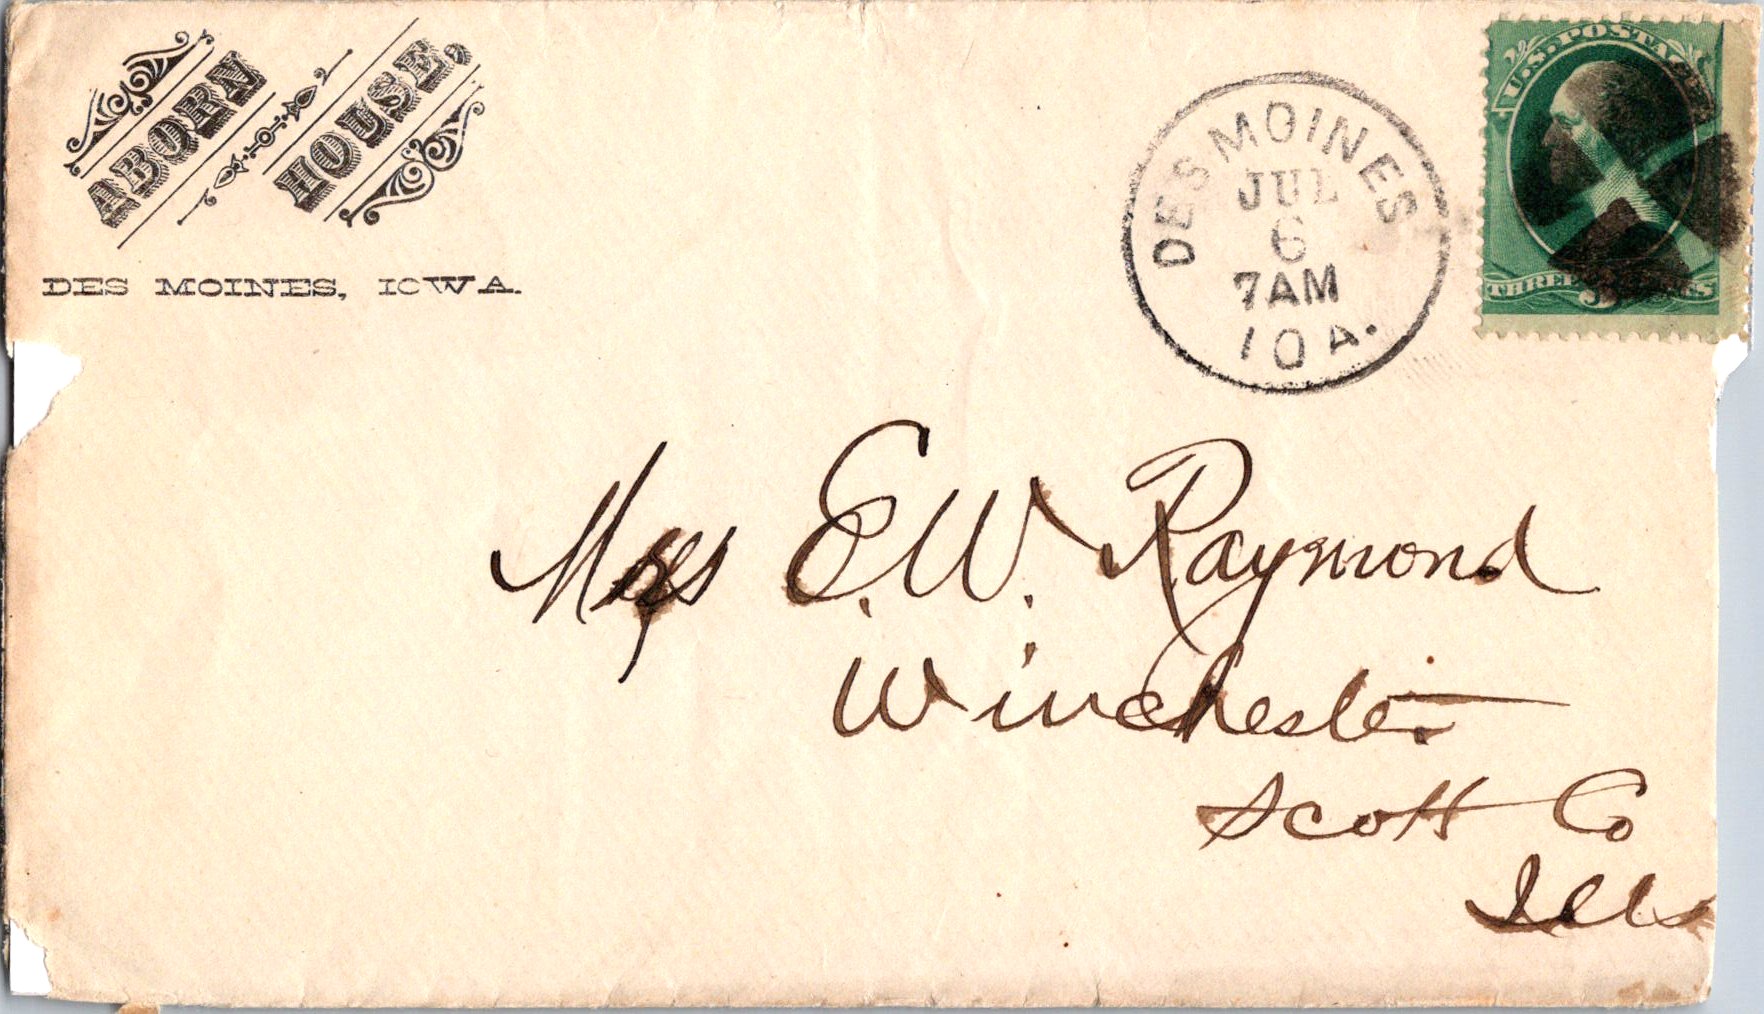 ABORN
HOUSE,
DES MOINES, IOWA.
DES MOINES
JUL
6
7AM
IOA.
U.S. POSTA
THREE 3 CENTS
Mrs E. W. Raymond
Winchester
Scott Co
Ills